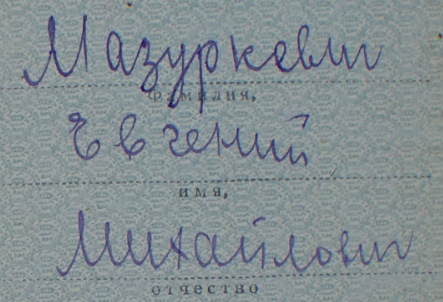 Мазуркевич
фамилия,
Евгений
имя,
Михайлович
отчество